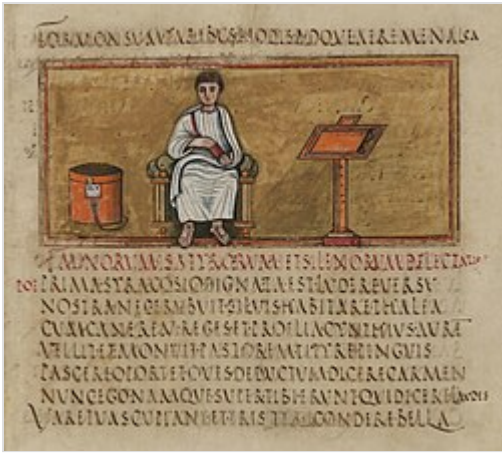 FORMONSVM PARIBVS NODIS ADQVE AERE MENALCA
FAVNORVM SATYRORVM ET SILENORVM DELECTATIO
POE PRIMA SYRACOSIO DIGNATA EST LVDERE VERSV
NOSTRA NEC ERVBVIT SILVIS HABITARE THALEA
CVM CANEREM REGES ET PROELIA CYNTHIVS AVRE
VELLIT ET AMONVIT PASTOREM TITYRE PINGVIS
PASCERE OPORTET OVES DEDVCTVM DICERE CARMEN
NVNC EGO NAMQVE SVPER TIBI ERVNT QVI DICERE LAVDES
VARE TVAS CVPIANT ET TRISTIA CONDERE BELLA